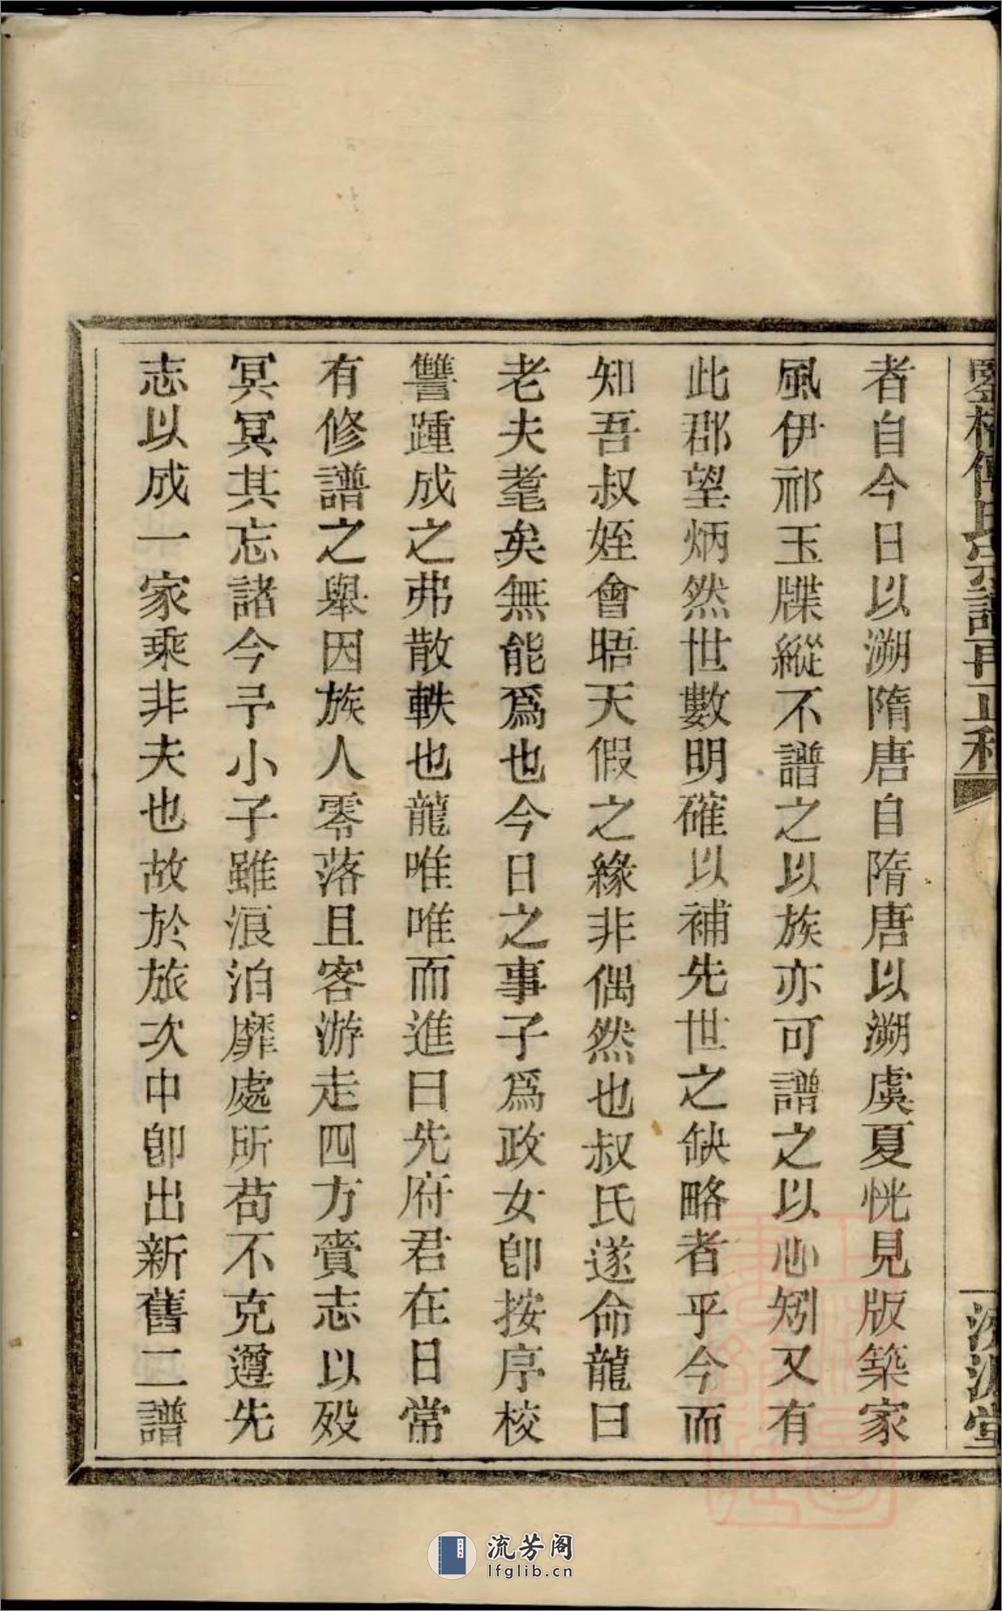 傅氏宗譜再正和
濟源堂
者自今日以溯隋唐自隋唐以溯虞夏恍見版築家
風伊祁玉牒縱不譜之以族亦可譜之以心矧又有
此郡望炳然世數明確以補先世之缺略者乎今而
知吾叔姪會晤天假之緣非偶然也叔氏遂命龍曰
老夫耄矣無能爲也今日之事子爲政女卽按序校
讐踵成之弗散軼也龍唯唯而進曰先府君在日常
有修譜之舉因族人零落且客游走四方賫志以歿
冥冥其忘諸今予小子雖浪泊靡處所苟不克遵先
志以成一家乘非夫也故於旅次中卽出新舊二譜
流芳阁
lfglib.cn